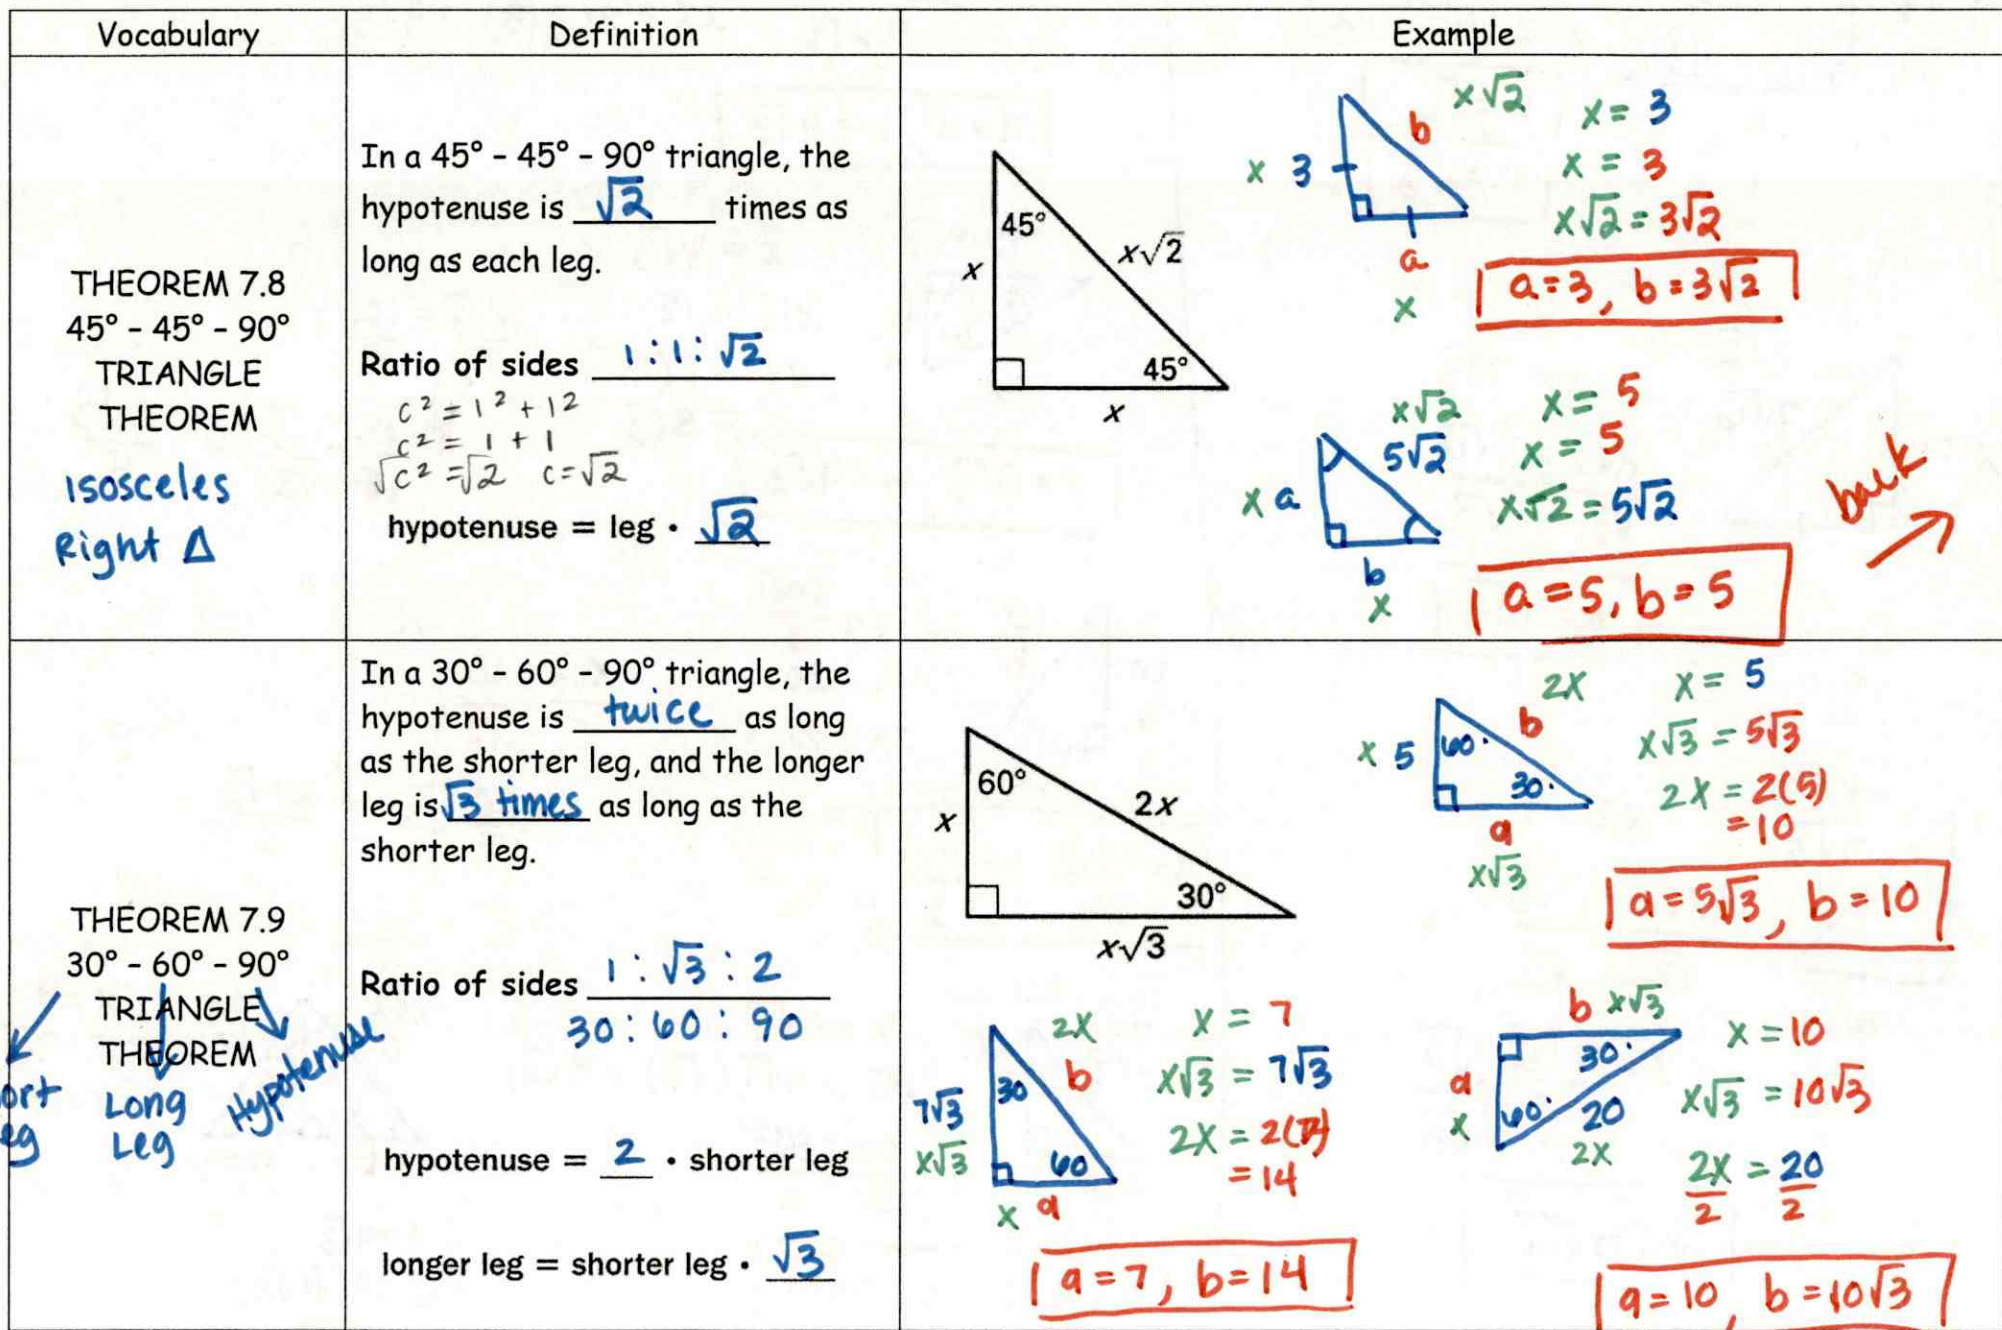 Vocabulary
Definition
Example
THEOREM 7.8
45° - 45° - 90°
TRIANGLE
THEOREM
Isosceles
Right Δ
In a 45° - 45° - 90° triangle, the
hypotenuse is √2 times as
long as each leg.
Ratio of sides 1:1:√2
c² = 1² + 1²
c² = 1 + 1
√c² = √2 c = √2
hypotenuse = leg · √2
45°
x
x√2
45°
x
x√2
b
x 3
a
x
x = 3
x = 3
x√2 = 3√2
a = 3, b = 3√2
x√2
5√2
x a
b
x
x = 5
x = 5
x√2 = 5√2
a = 5, b = 5
back
THEOREM 7.9
30° - 60° - 90°
TRIANGLE
THEOREM
ort
eg
Long
Leg
Hypotenuse
In a 30° - 60° - 90° triangle, the
hypotenuse is twice as long
as the shorter leg, and the longer
leg is √3 times as long as the
shorter leg.
Ratio of sides 1 : √3 : 2
30 : 60 : 90
hypotenuse = 2 · shorter leg
longer leg = shorter leg · √3
60°
x
2x
30°
x√3
2x
b
x 5
60°
30°
a
x√3
x = 5
x√3 = 5√3
2x = 2(5)
= 10
a = 5√3, b = 10
2x
b
30
7√3
x√3
60
x a
x = 7
x√3 = 7√3
2x = 2(7)
= 14
a = 7, b = 14
b x√3
30°
a
x
60°
20
2x
x = 10
x√3 = 10√3
2x = 20
2 2
a = 10, b = 10√3